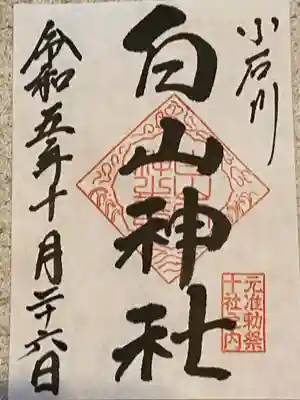 小石川
白山神社
元准勅祭
十社之内
令和五年十月二十六日